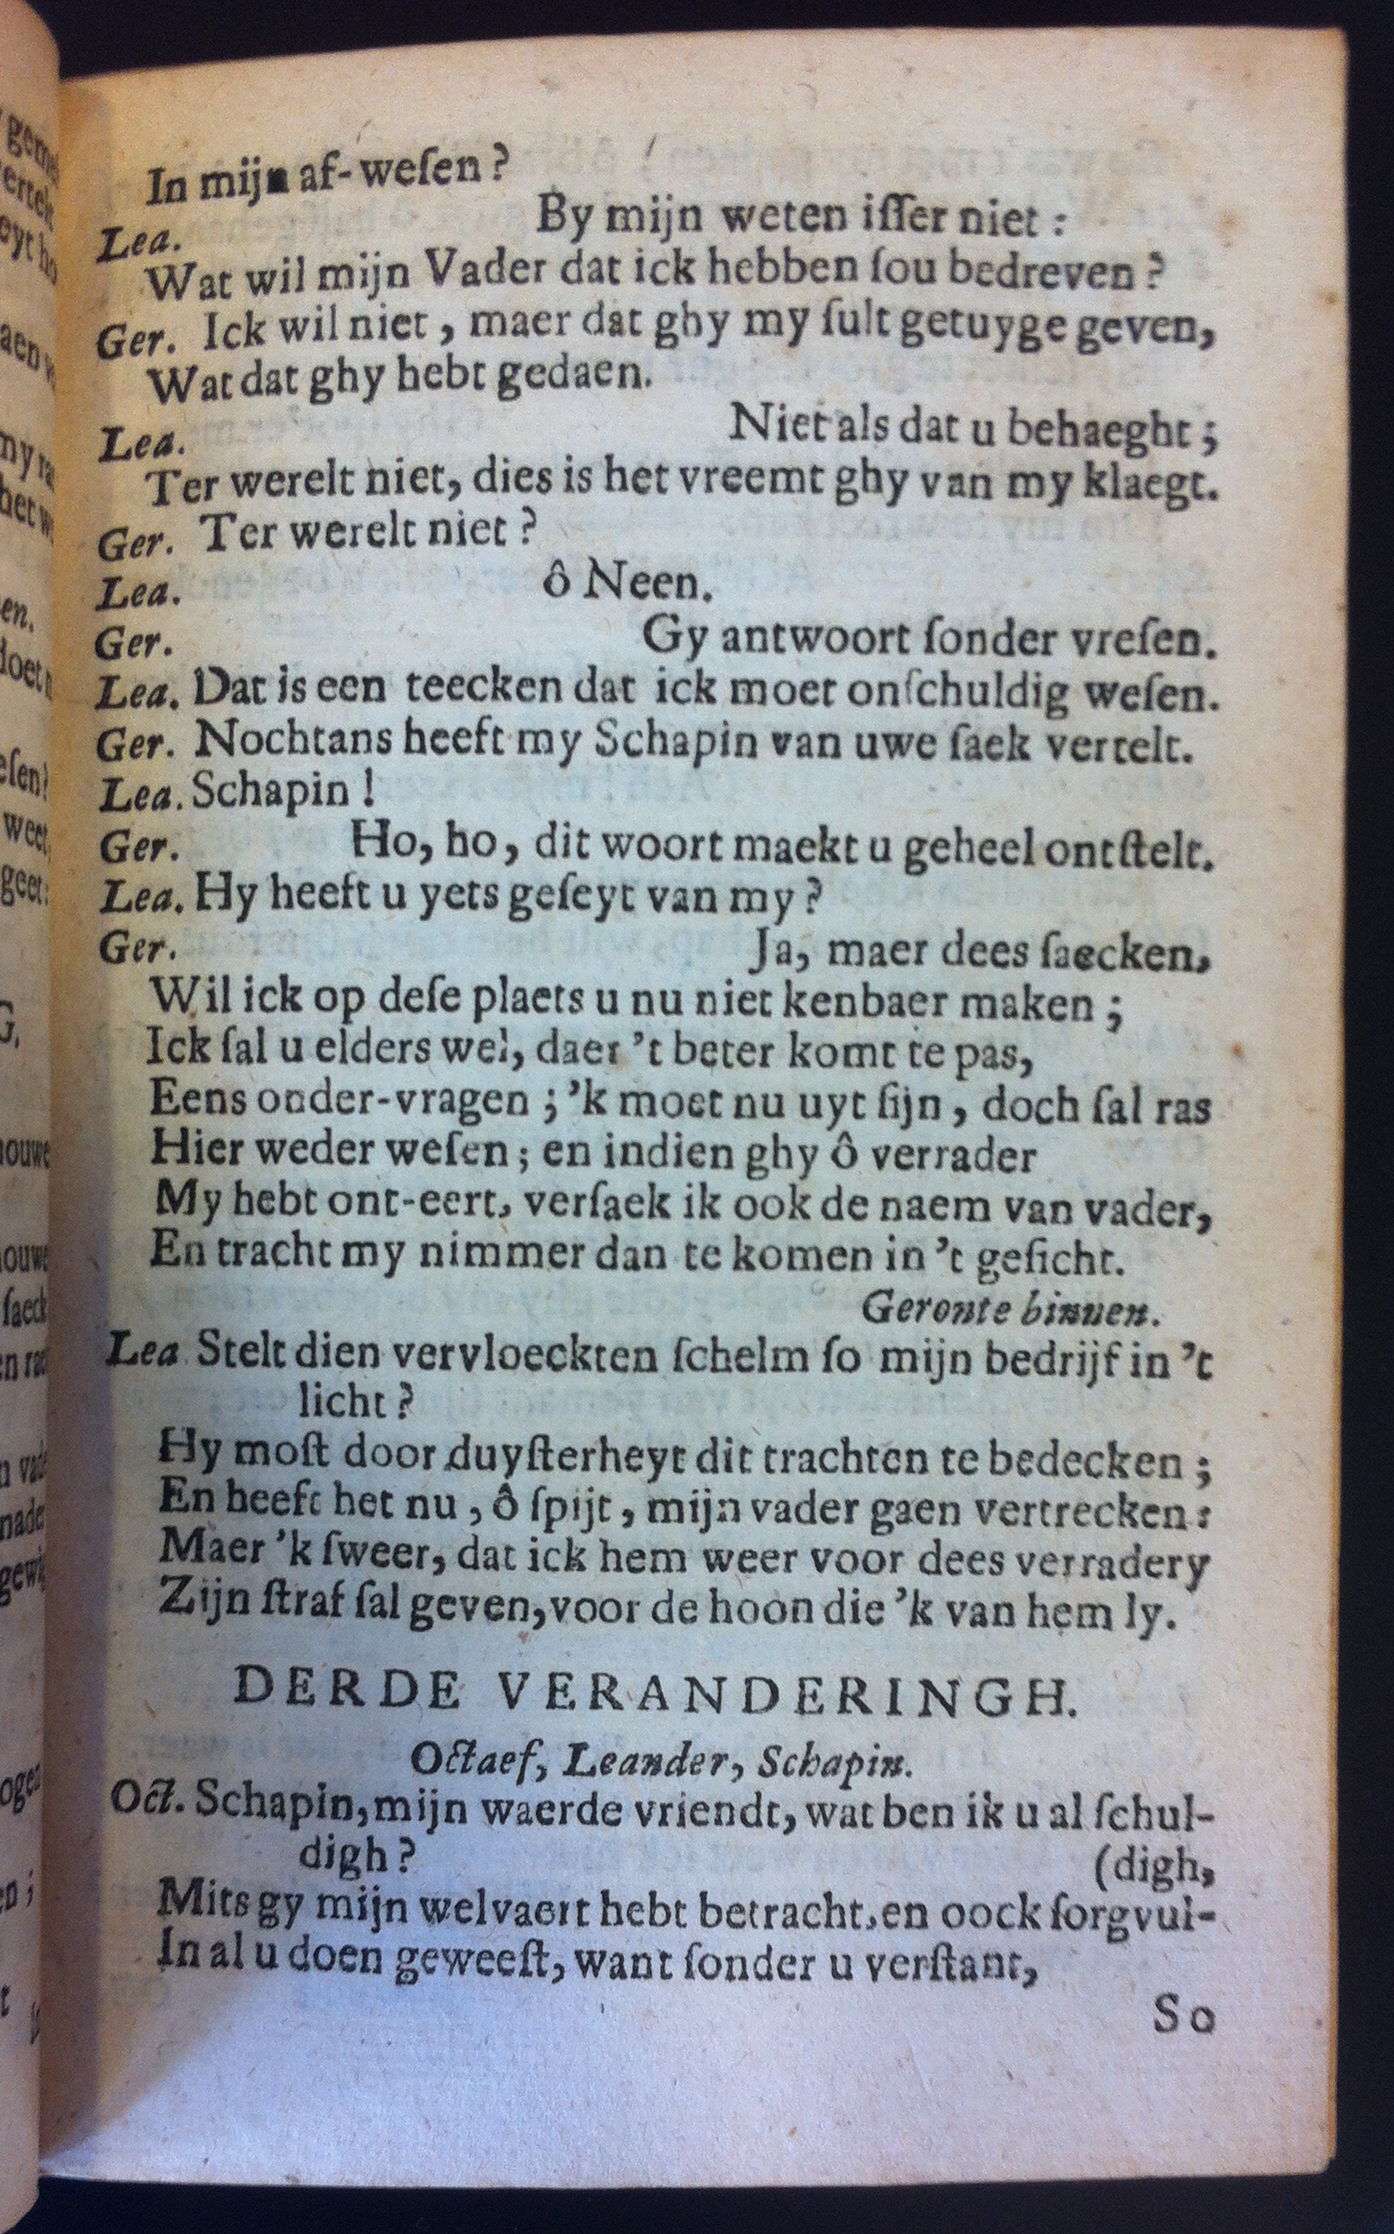 In mijn af-weſen?
Lea. By mijn weten iſſer niet:
Wat wil mijn Vader dat ick hebben ſou bedreven?
Ger. Ick wil niet, maer dat ghy my ſult getuyge geven,
Wat dat ghy hebt gedaen.
Lea. Niet als dat u behaeght;
Ter werelt niet, dies is het vreemt ghy van my klaegt.
Ger. Ter werelt niet?
Lea. ô Neen.
Ger. Gy antwoort ſonder vreſen.
Lea. Dat is een teecken dat ick moet onſchuldig weſen.
Ger. Nochtans heeft my Schapin van uwe ſaek vertelt.
Lea. Schapin!
Ger. Ho, ho, dit woort maekt u geheel ontſtelt.
Lea. Hy heeft u yets geſeyt van my?
Ger. Ja, maer dees ſaecken,
Wil ick op deſe plaets u nu niet kenbaer maken;
Ick ſal u elders wel, daer 't beter komt te pas,
Eens onder-vragen; 'k moet nu uyt ſijn, doch ſal ras
Hier weder weſen; en indien ghy ô verrader
My hebt ont-eert, verſaek ik ook de naem van vader,
En tracht my nimmer dan te komen in 't geſicht.
Geronte binnen.
Lea Stelt dien vervloeckten ſchelm ſo mijn bedrijf in 't
licht?
Hy moſt door duyſterheyt dit trachten te bedecken;
En heeft het nu, ô ſpijt, mijn vader gaen vertrecken:
Maer 'k ſweer, dat ick hem weer voor dees verradery
Zijn ſtraf ſal geven, voor de hoon die 'k van hem ly.
DERDE VERANDERINGH.
Octaef, Leander, Schapin.
Oct. Schapin, mijn waerde vriendt, wat ben ik u al ſchul-
digh? (digh,
Mits gy mijn welvaert hebt betracht, en oock ſorgvul-
In al u doen geweeſt, want ſonder u verſtant,
So